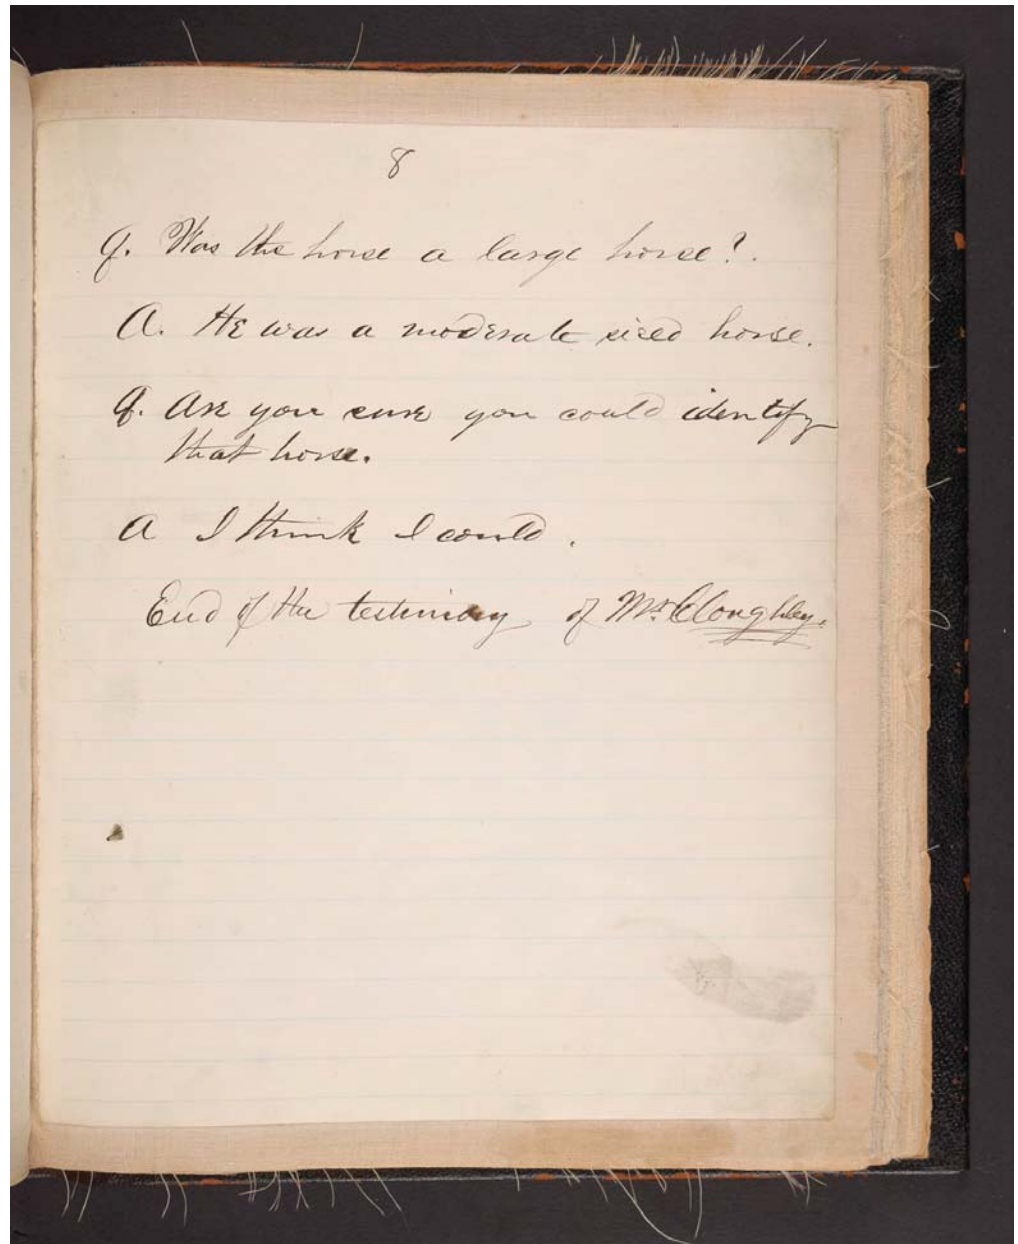 8
Q. Was the horse a large horse?.
A. He was a moderate sized horse.
Q. Are you sure you could identify
that horse.
A I think I could.
End of the testimony of Mr. Cloughley.